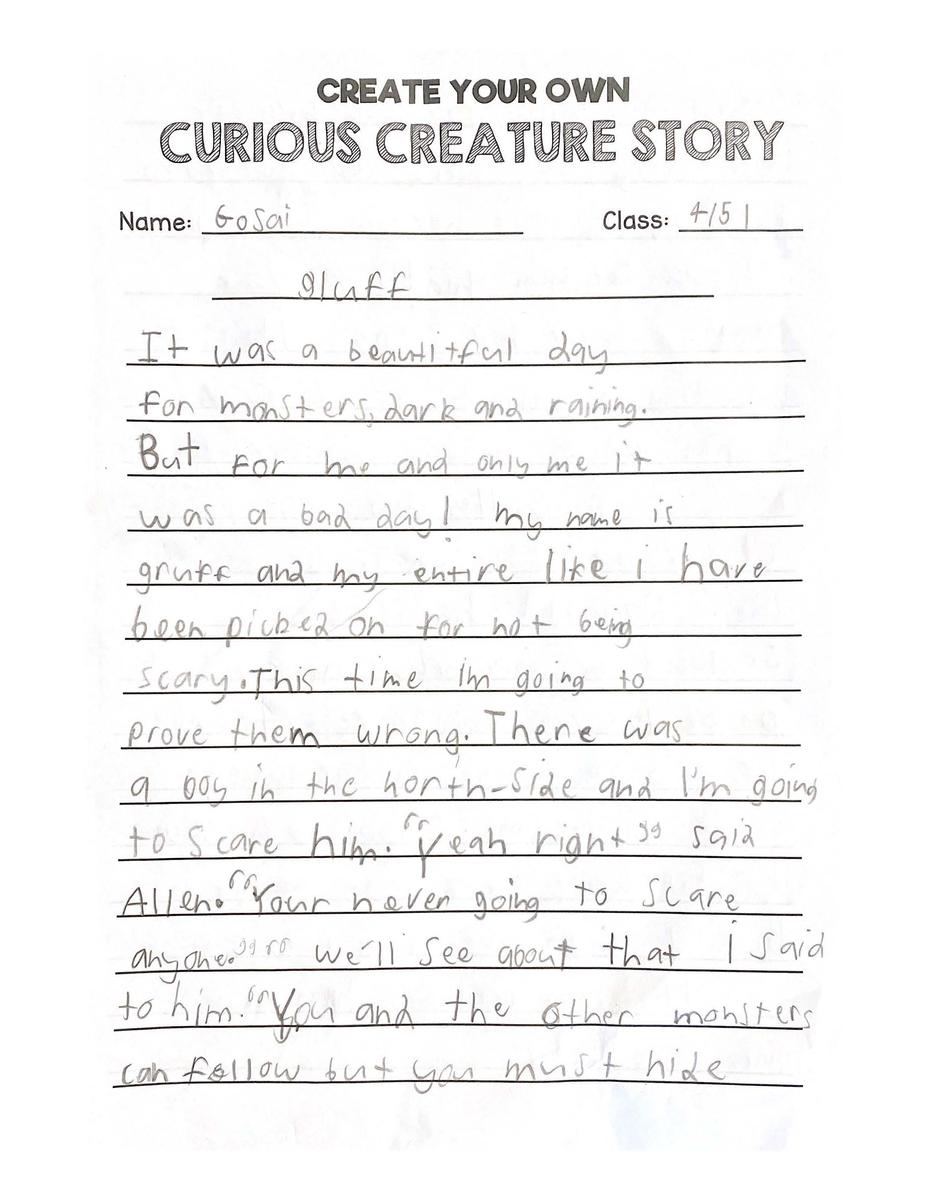 CREATE YOUR OWN
CURIOUS CREATURE STORY
Name: Gosai Class: 4/5 1
gluff
It was a beautitful day
for monsters, dark and raining.
But for me and only me it
was a bad day! my name is
gruff and my entire like i have
been picked on for not being
scary. This time Im going to
prove them wrong. There was
a boy in the north-side and I'm going
to scare him. "Yeah right" said
Allen. "Your never going to scare
anyone." "we'll see about that i said
to him. "You and the other monsters
can follow but you must hide